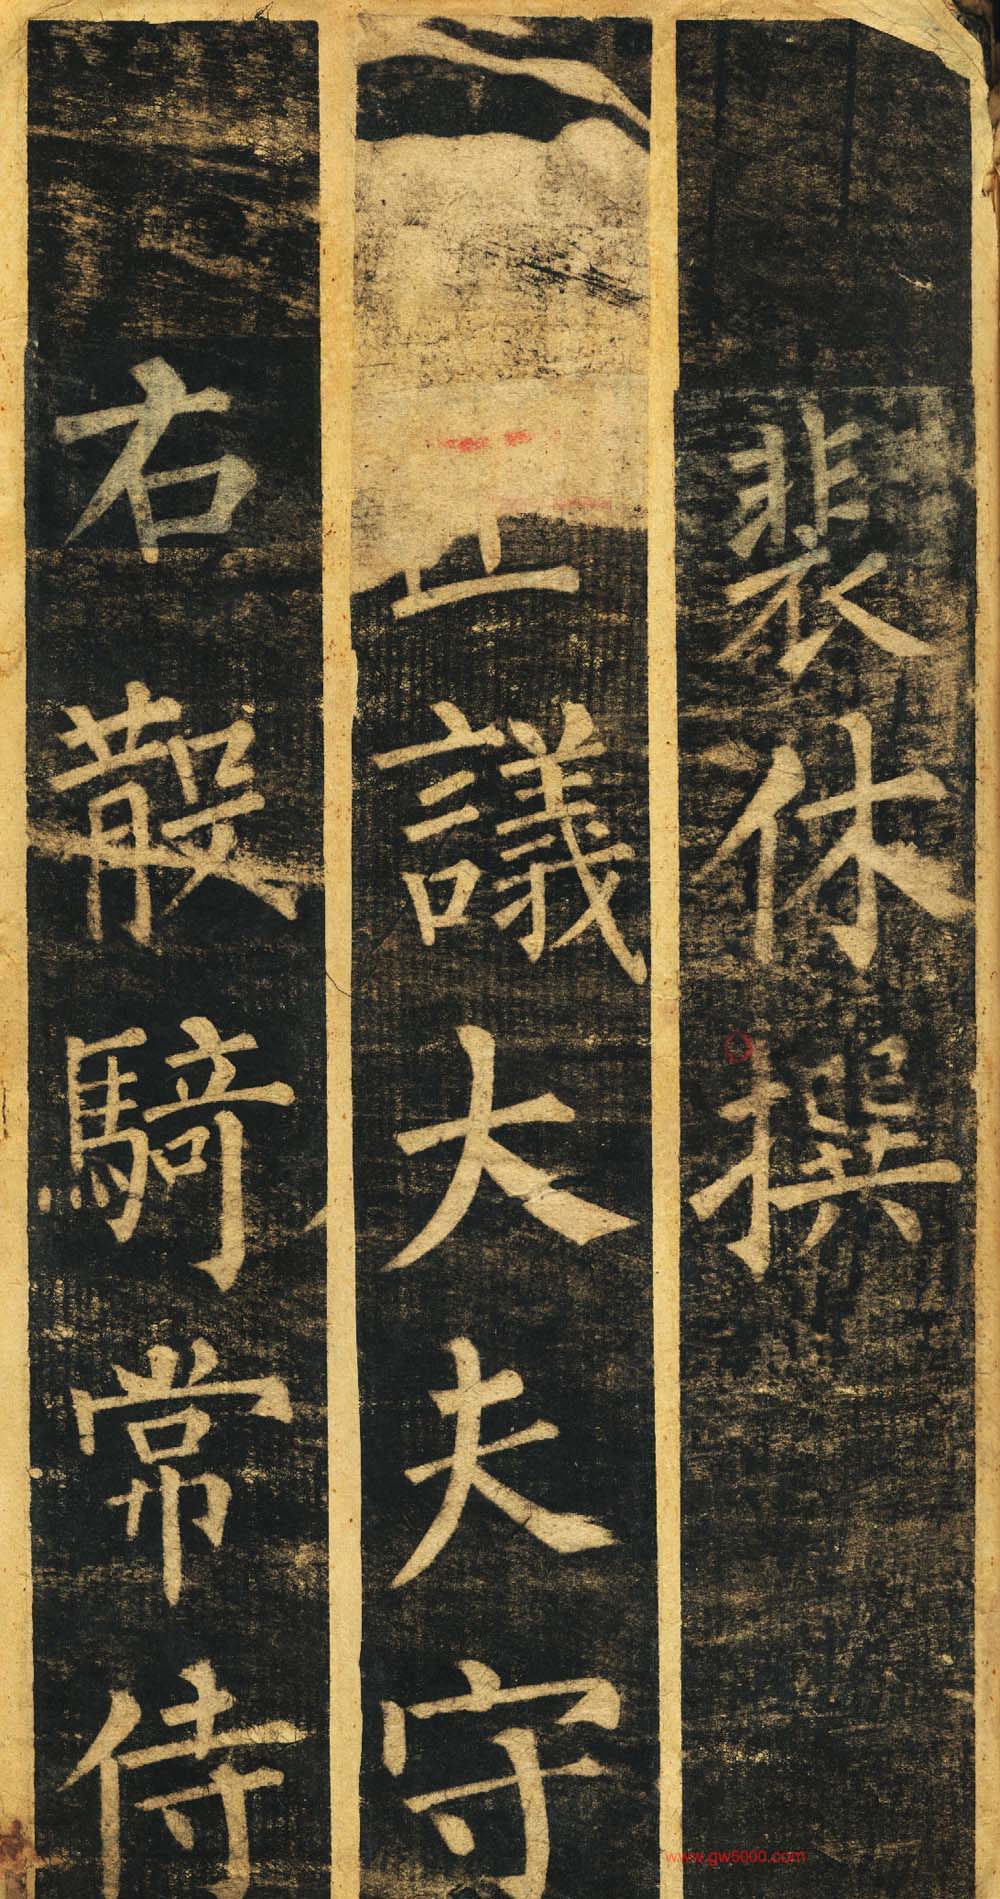 裴休撰
正議大夫守
右散騎常侍
www.gw5000.com